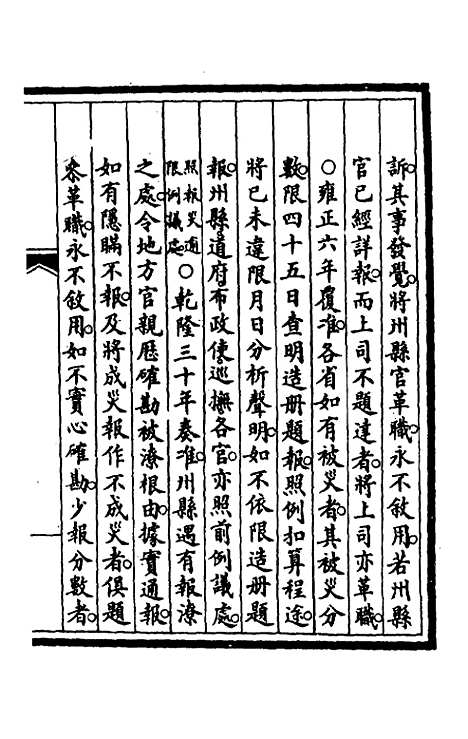 訴其事發覺將州縣官革職永不敘用若州縣
官已經詳報而上司不題達者將上司亦革職
○雍正六年覆准各省如有被災者其被災分
數限四十五日查明造册題報照例扣算程途
將已未違限月日分析聲明如不依限造册題
報州縣道府布政使巡撫各官亦照前例議處
照報災違限例議處○乾隆三十年奏准州縣遇有報潦
之處令地方官親歷確勘被潦根由據實通報
如有隱瞞不報及將成災報作不成災者俱題
叅革職永不敘用如不實心確勘少報分數者